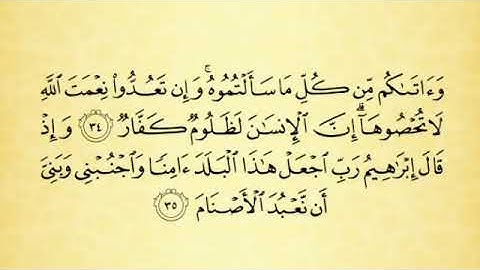 وَءَاتَىٰكُم مِّن كُلِّ مَا سَأَلْتُمُوهُ ۚ وَإِن تَعُدُّوا۟ نِعْمَتَ ٱللَّهِ
لَا تُحْصُوهَآ ۗ إِنَّ ٱلْإِنسَـٰنَ لَظَلُومٌ كَفَّارٌ ٣٤ وَإِذْ
قَالَ إِبْرَٰهِيمُ رَبِّ ٱجْعَلْ هَـٰذَا ٱلْبَلَدَ ءَامِنًا وَٱجْنُبْنِى وَبَنِىَّ
أَن نَّعْبُدَ ٱلْأَصْنَامَ ٣٥